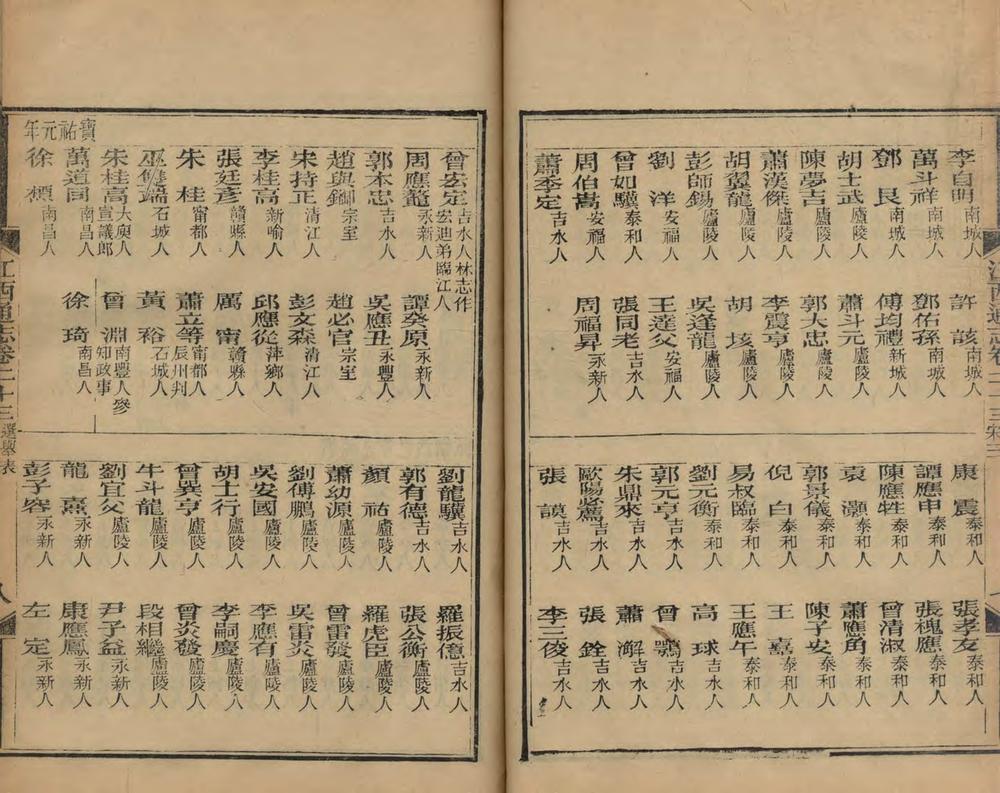 李自明 南城人 許該 南城人
萬斗祥 南城人 鄧佑孫 南城人
鄧艮 南城人 傅均禮 新城人
胡士武 廬陵人 蕭斗元 廬陵人
陳夢吉 廬陵人 郭大忠 廬陵人
蕭漢傑 廬陵人 李震亨 廬陵人
胡翼龍 廬陵人 胡垓 廬陵人
彭師錫 廬陵人 吳逢龍 廬陵人
劉洋 安福人 王達父 安福人
曾如驥 泰和人 張同老 吉水人
周伯嵩 安福人 周福昇 永新人
蕭季定 吉水人
康震 泰和人 張孝友 泰和人
譚應申 泰和人 張槐應 泰和人
陳應牲 泰和人 曾清淑 泰和人
袁灝 泰和人 蕭應角 泰和人
郭景儀 泰和人 陳子安 泰和人
倪白 泰和人 王嘉 泰和人
易叔臨 泰和人 王應午 泰和人
劉元衡 泰和人 高球 吉水人
郭元亨 吉水人 曾鶚 吉水人
朱鼎來 吉水人 蕭澥 吉水人
歐陽必薦 吉水人 張銓 吉水人
張謨 吉水人 李三俊 吉水人
曾宏定 吉水人林志作宏迪弟臨江人
周應鰲 永新人 譚癸原 永新人
郭本忠 吉水人 吳應丑 永豐人
趙與鉚 宗室 趙必官 宗室
宋持正 清江人 彭文森 清江人
李桂高 新喻人 邱應從 萍鄉人
張廷彥 贛縣人 厲甯 贛縣人
朱桂 甯都人 蕭立等 甯都人辰州判
巫雙瑞 石城人 黃裕 石城人
朱桂高 大庾人宣議郎 曾淵 南豐人參知政事
萬道同 南昌人 徐琦 南昌人
寶祐元年
徐標 南昌人
劉龍驥 吉水人 羅振億 吉水人
郭有德 吉水人 張公衡 廬陵人
顏祐 廬陵人 羅虎臣 廬陵人
蕭幼源 廬陵人 曾雷發 廬陵人
劉傅鵬 廬陵人 吳雷炎 廬陵人
吳安國 廬陵人 李應有 廬陵人
胡士行 廬陵人 李嗣慶 廬陵人
曾巽亨 廬陵人 曾炎發 廬陵人
牛斗龍 廬陵人 段相繼 廬陵人
劉宜父 廬陵人 尹子益 永新人
龍熹 永新人 康應鳳 永新人
彭子容 永新人 左定 永新人
江西通志卷二十三 選舉表 八